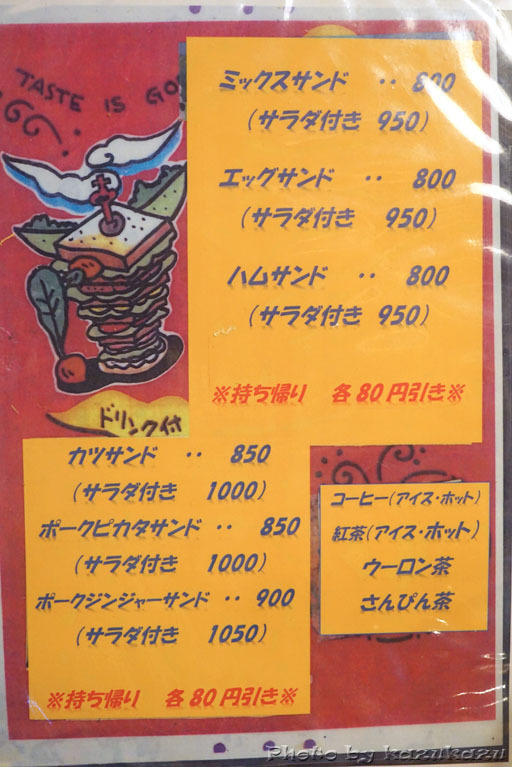 TASTE IS GO
ミックスサンド ‥ 800
(サラダ付き 950)
エッグサンド ‥ 800
(サラダ付き 950)
ハムサンド ‥ 800
(サラダ付き 950)
※持ち帰り 各80円引き※
ドリンク付
カツサンド ‥ 850
(サラダ付き 1000)
ポークピカタサンド ‥ 850
(サラダ付き 1000)
ポークジンジャーサンド ‥ 900
(サラダ付き 1050)
※持ち帰り 各80円引き※
コーヒー(アイス・ホット)
紅茶(アイス・ホット)
ウーロン茶
さんぴん茶
Photo by kazukazu